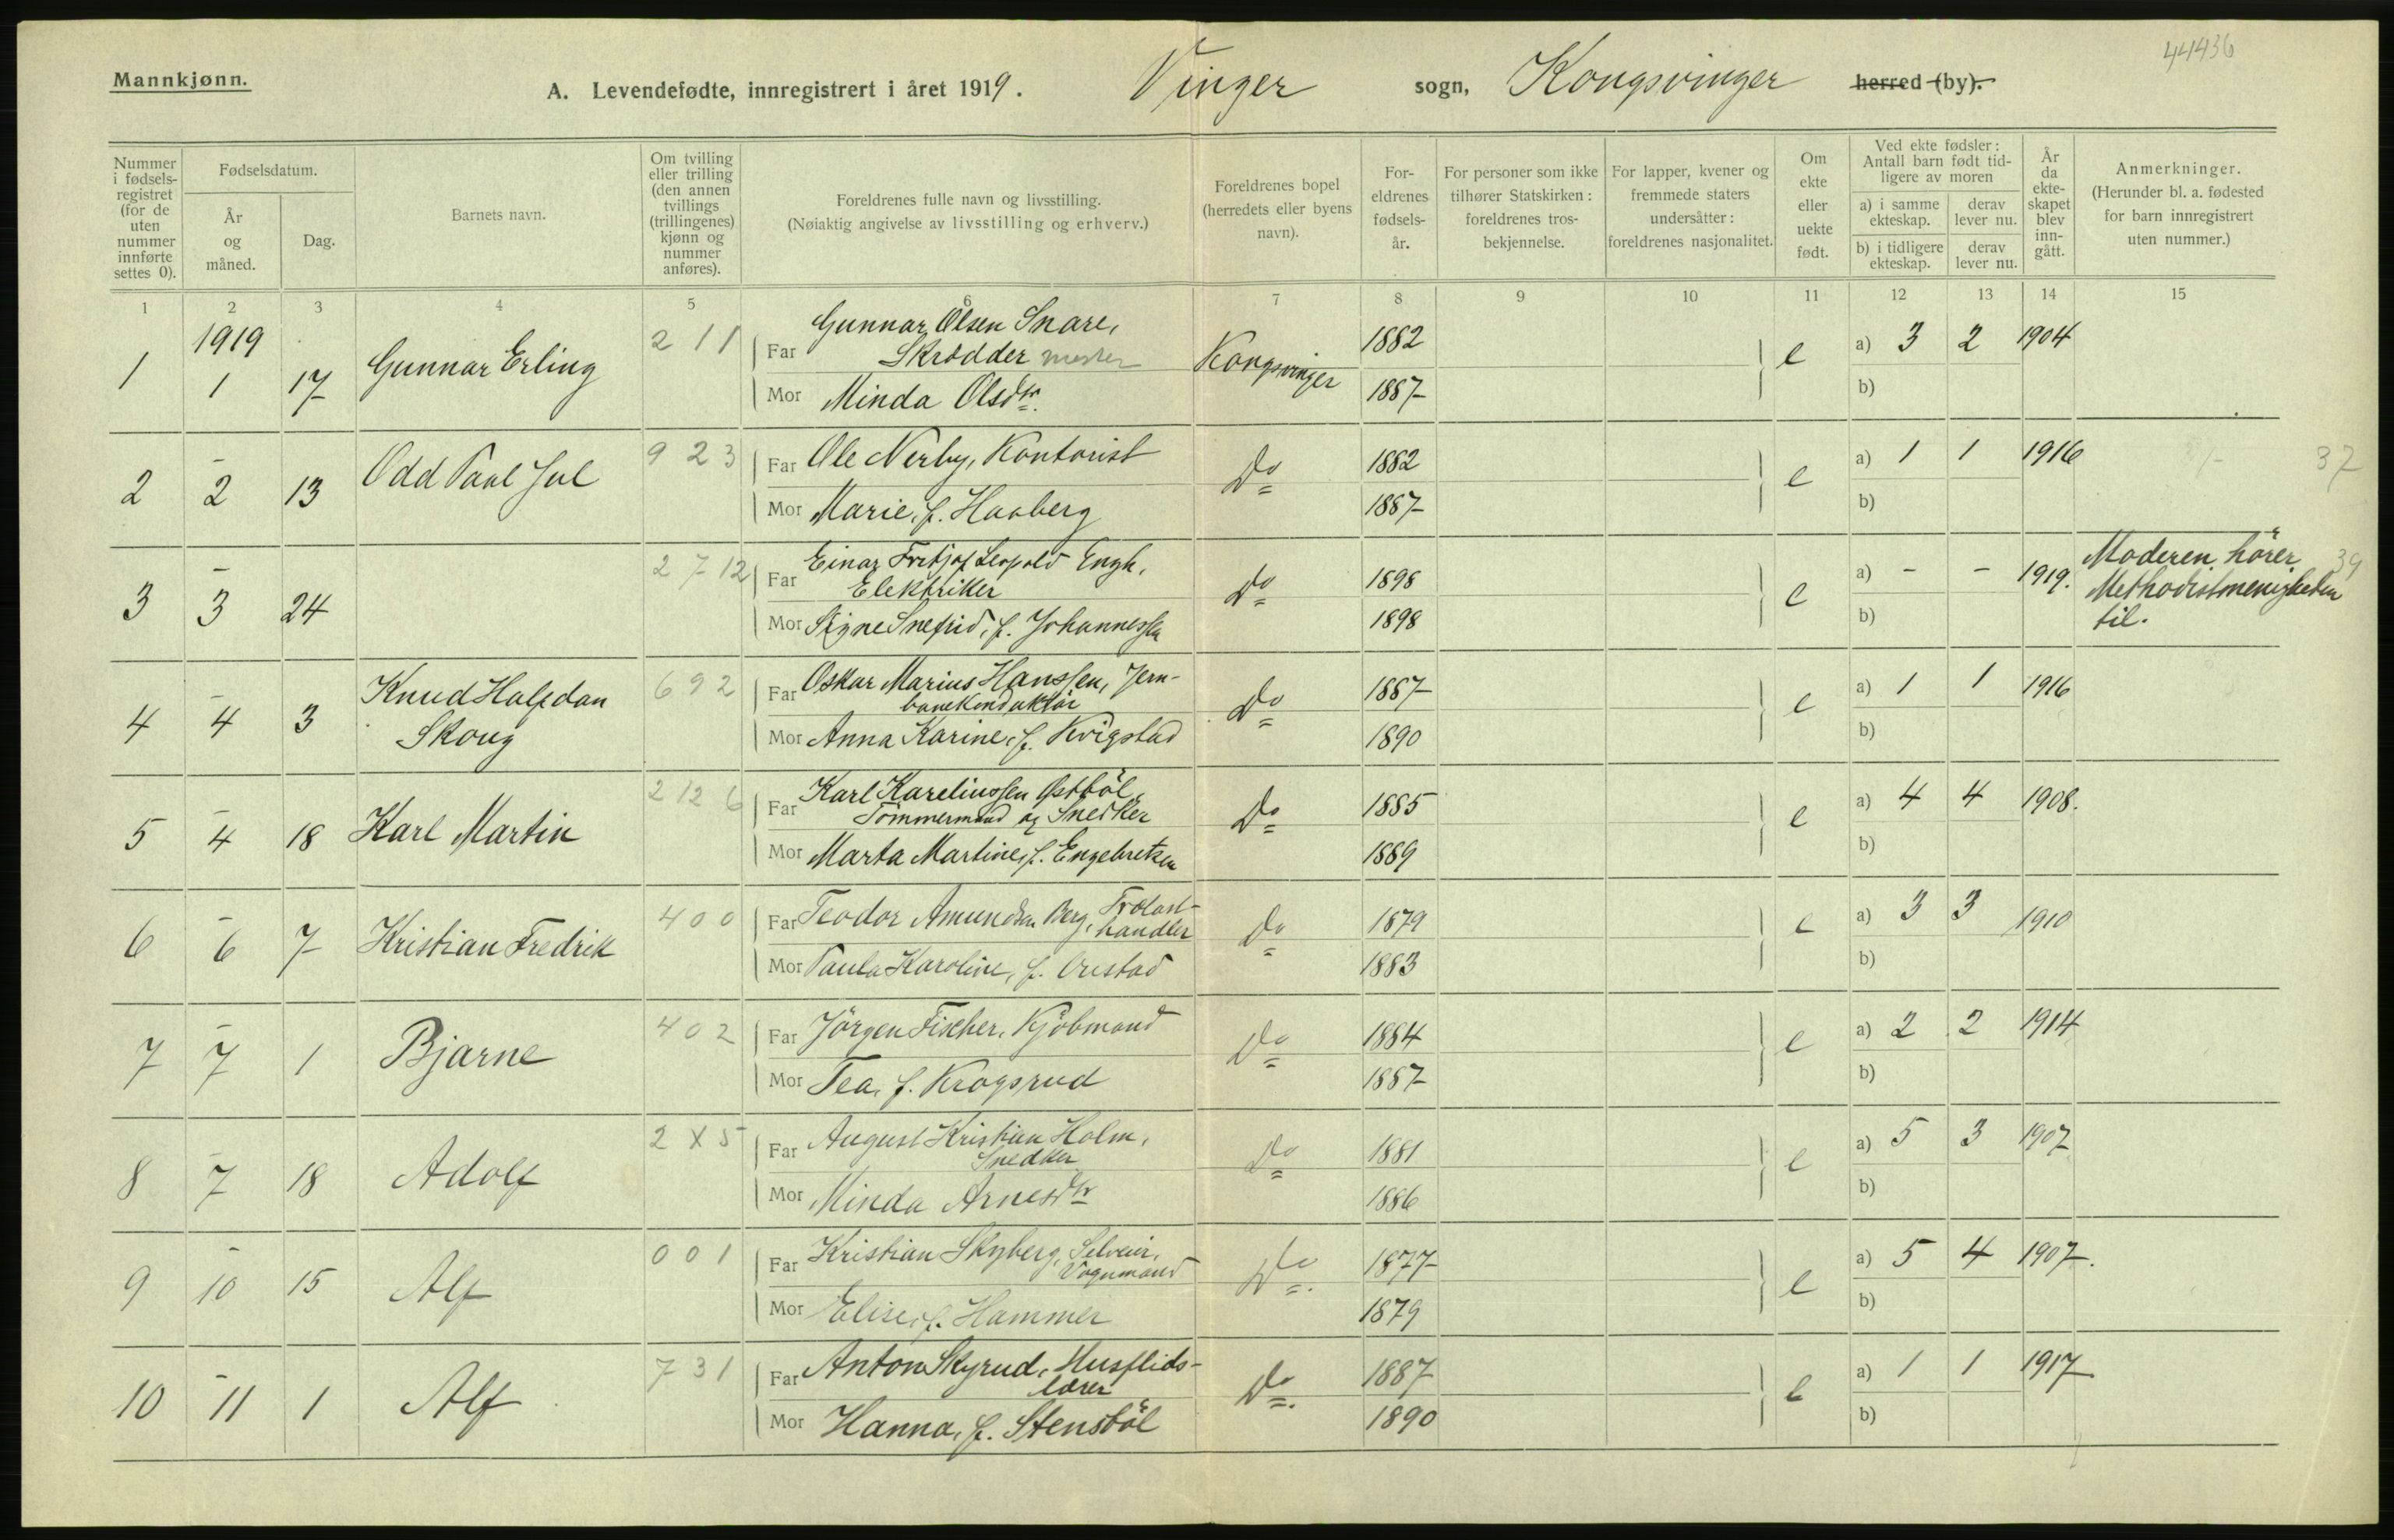 44436
Mannkjønn.
A. Levendefødte, innregistrert i året 1919. Vinger sogn, Kongsvinger herred (by).
Nummer i fødselsregistret (for de uten nummer innførte settes 0).
Fødselsdatum.
År og måned.
Dag.
Barnets navn.
Om tvilling eller trilling (den annen tvillings (trillingenes) kjønn og nummer anføres).
Foreldrenes fulle navn og livsstilling.
(Nøiaktig angivelse av livsstilling og erhverv.)
Foreldrenes bopel (herredets eller byens navn).
Foreldrenes fødselsår.
For personer som ikke tilhører Statskirken: foreldrenes trosbekjennelse.
For lapper, kvener og fremmede staters undersåtter: foreldrenes nasjonalitet.
Om ekte eller uekte født.
Ved ekte fødsler: Antall barn født tidligere av moren
a) i samme ekteskap.
derav lever nu.
b) i tidligere ekteskap.
derav lever nu.
År da ekteskapet blev inngått.
Anmerkninger.
(Herunder bl. a. fødested for barn innregistrert uten nummer.)
1 2 3 4 5 6 7 8 9 10 11 12 13 14 15
1 1919 1 17 Gunnar Erling 211
Far Gunnar Olsen Snare, Skrædder mester Kongsvinger 1882 e a) 3 2 1904
Mor Minda Olsdtr. 1887 b)
2 - 2 13 Odd Paul Jul 923
Far Ole Nerby, Kontorist Do 1882 e a) 1 1 1916 37
Mor Marie, f. Haaberg 1887 b)
3 - 3 24 2712
Far Einar Fritjof Leopold Engh, Elektriker Do 1898 e a) - - 1919. Moderen hører Methodistmenigheten til. 39
Mor Signe Snefrid, f. Johannessen 1898 b)
4 - 4 3 Knud Halfdan Skoug 692
Far Oskar Marius Hanssen, Jernbanekonduktør Do 1887 e a) 1 1 1916
Mor Anna Karine, f. Kvigstad 1890 b)
5 - 4 18 Karl Martin 2126
Far Karl Kareliussen Østbøl, Tømmermand og Snedker Do 1885 e a) 4 4 1908.
Mor Marta Martine, f. Engebretsen 1889 b)
6 - 6 7 Kristian Fredrik 400
Far Teodor Amundsen Berg, Trælasthandler Do 1879 e a) 3 3 1910
Mor Paula Karoline, f. 1883 b)
7 - 7 1 Bjarne 402
Far Jørgen Fischer, Kjøbmand Do 1884 e a) 2 2 1914
Mor Tea, f. Krogsrud 1887 b)
8 - 7 18 Adolf 2X5
Far August Kristian Holm, Snedker Do 1881 e a) 5 3 1907
Mor Minda Arnesdtr 1886 b)
9 - 10 15 Alf 001
Far Kristian Skyberg, Selveier, Vognmand Do. 1877 e a) 5 4 1907.
Mor Elise, f. Hammer 1879 b)
10 - 11 1 Alf 731
Far Anton Skyrud, Husflidslærer Do. 1887 e a) 1 1 1917
Mor Hanna, f. Stensbøl 1890 b)